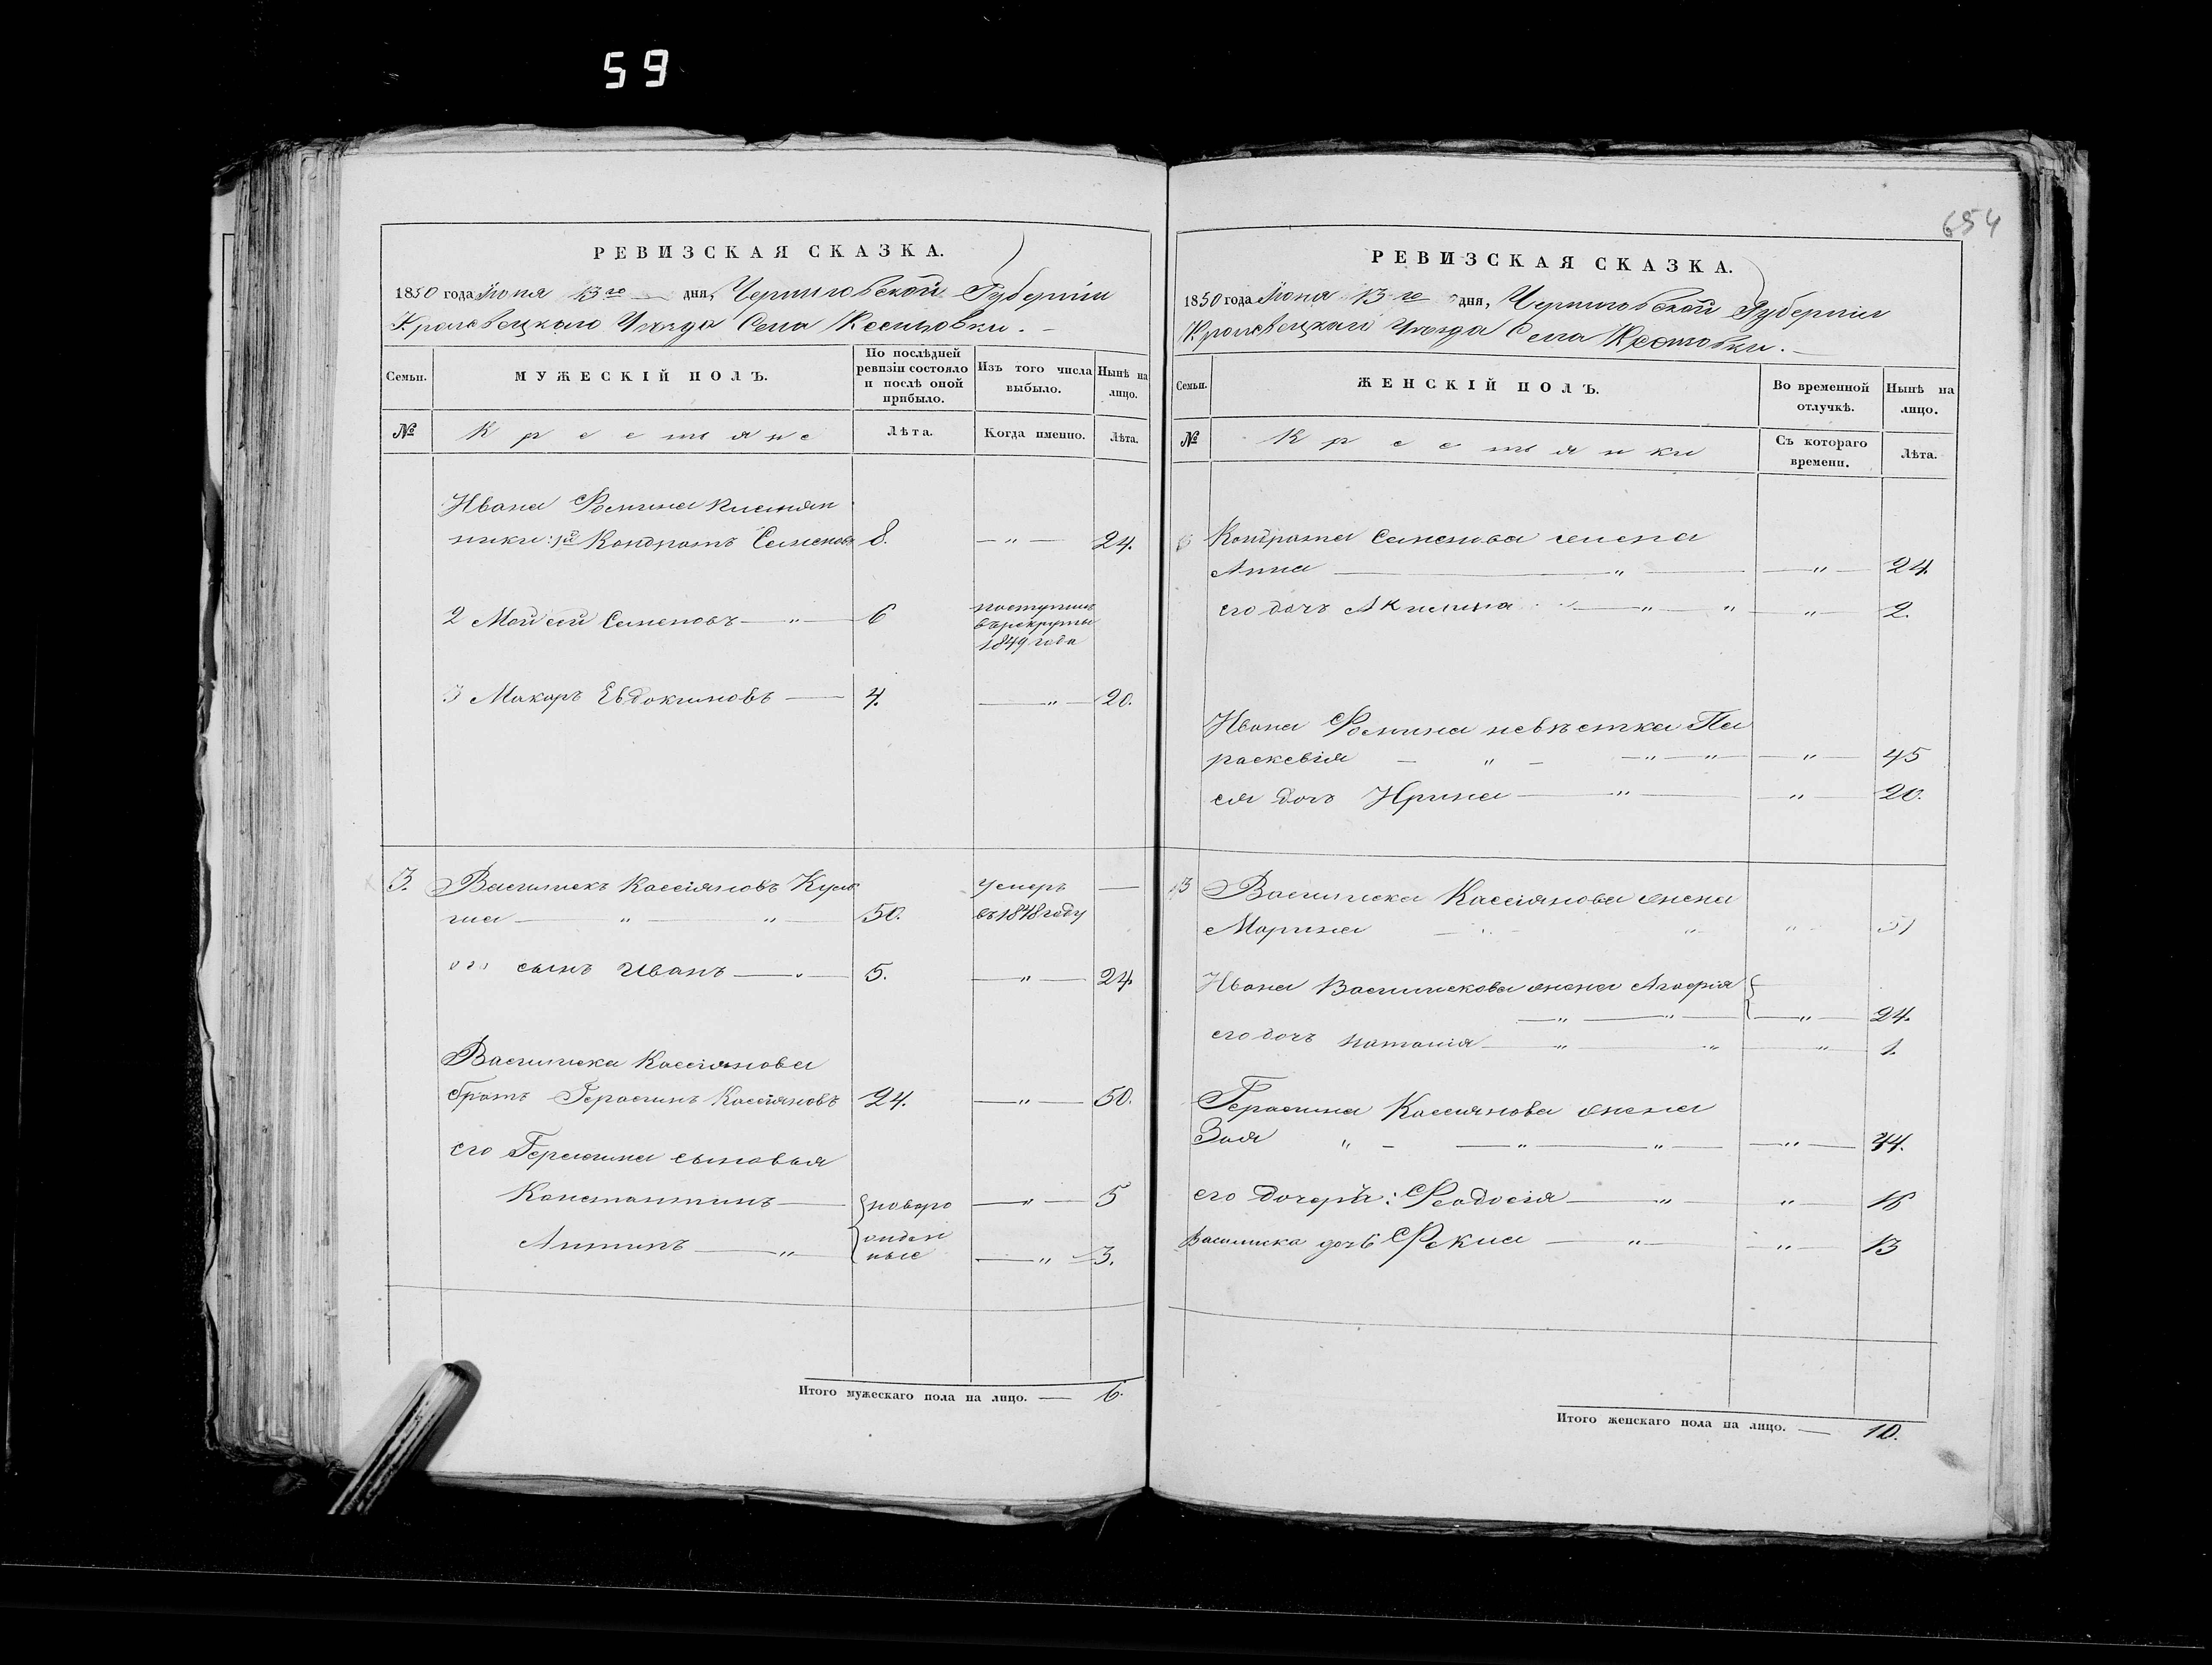 59
654
РЕВИЗСКАЯ СКАЗКА.
1850 года Июня 13го дня, Черниговской Губерніи
Кролевецкаго Уѣзда Села
Семьи.
МУЖЕСКІЙ ПОЛЪ.
По послѣдней ревизіи состояло и послѣ оной прибыло.
Изъ того числа выбыло.
Нынѣ на лицо.
№
Крестьяне
Лѣта.
Когда именно.
Лѣта.
Ивана Фомина племян
ники: 1й Кондратъ Семеновъ 8. — " — 24.
2 Мойсей Семеновъ — " — 6 поступилъ
въ рекруты
1849 года
3 Макаръ Евдокимовъ — 4. — " — 20.
3. Василискъ Кассіяновъ умеръ —
— " — " 50. въ 1848 году
его сынъ Иванъ — " — 5. — " — 24
Василиска Кассіянова
братъ Герасимъ Кассіяновъ 24. — " — 50.
его Герасима сыновья
Константинъ — новоро — " — 5
Антипъ — " жден
ные — " — 3.
Итого мужескаго пола на лицо. — 6.
РЕВИЗСКАЯ СКАЗКА.
1850 года Июня 13го дня, Черниговской Губерніи
Кролевецкаго Уѣзда Села
Семьи.
ЖЕНСКІЙ ПОЛЪ.
Во временной отлучкѣ.
Нынѣ на лицо.
№
Крестьянки
Съ котораго времени.
Лѣта.
Кондрата Семенова жена
Анна — " — — " — 24.
его дочь Акилина — " — " — " — 2.
Ивана Фомина невѣстка Па
раскевія — " — — " — " — — " — 45
ея дочь Ирина — " — — " — 20.
3 Василиска Кассіянова жена
Марина — " — " " 51
Ивана Василискова жена Агафія
— " — " — — " — 24.
его дочь Наталія — " — " — " — 1.
Герасима Кассіянова жена
Зоя " — — " — " — — " — 44.
его дочери: Феодосія — " — " —
Василиска дочь Фекла — " — — " — 13
Итого женскаго пола на лицо. — 10.